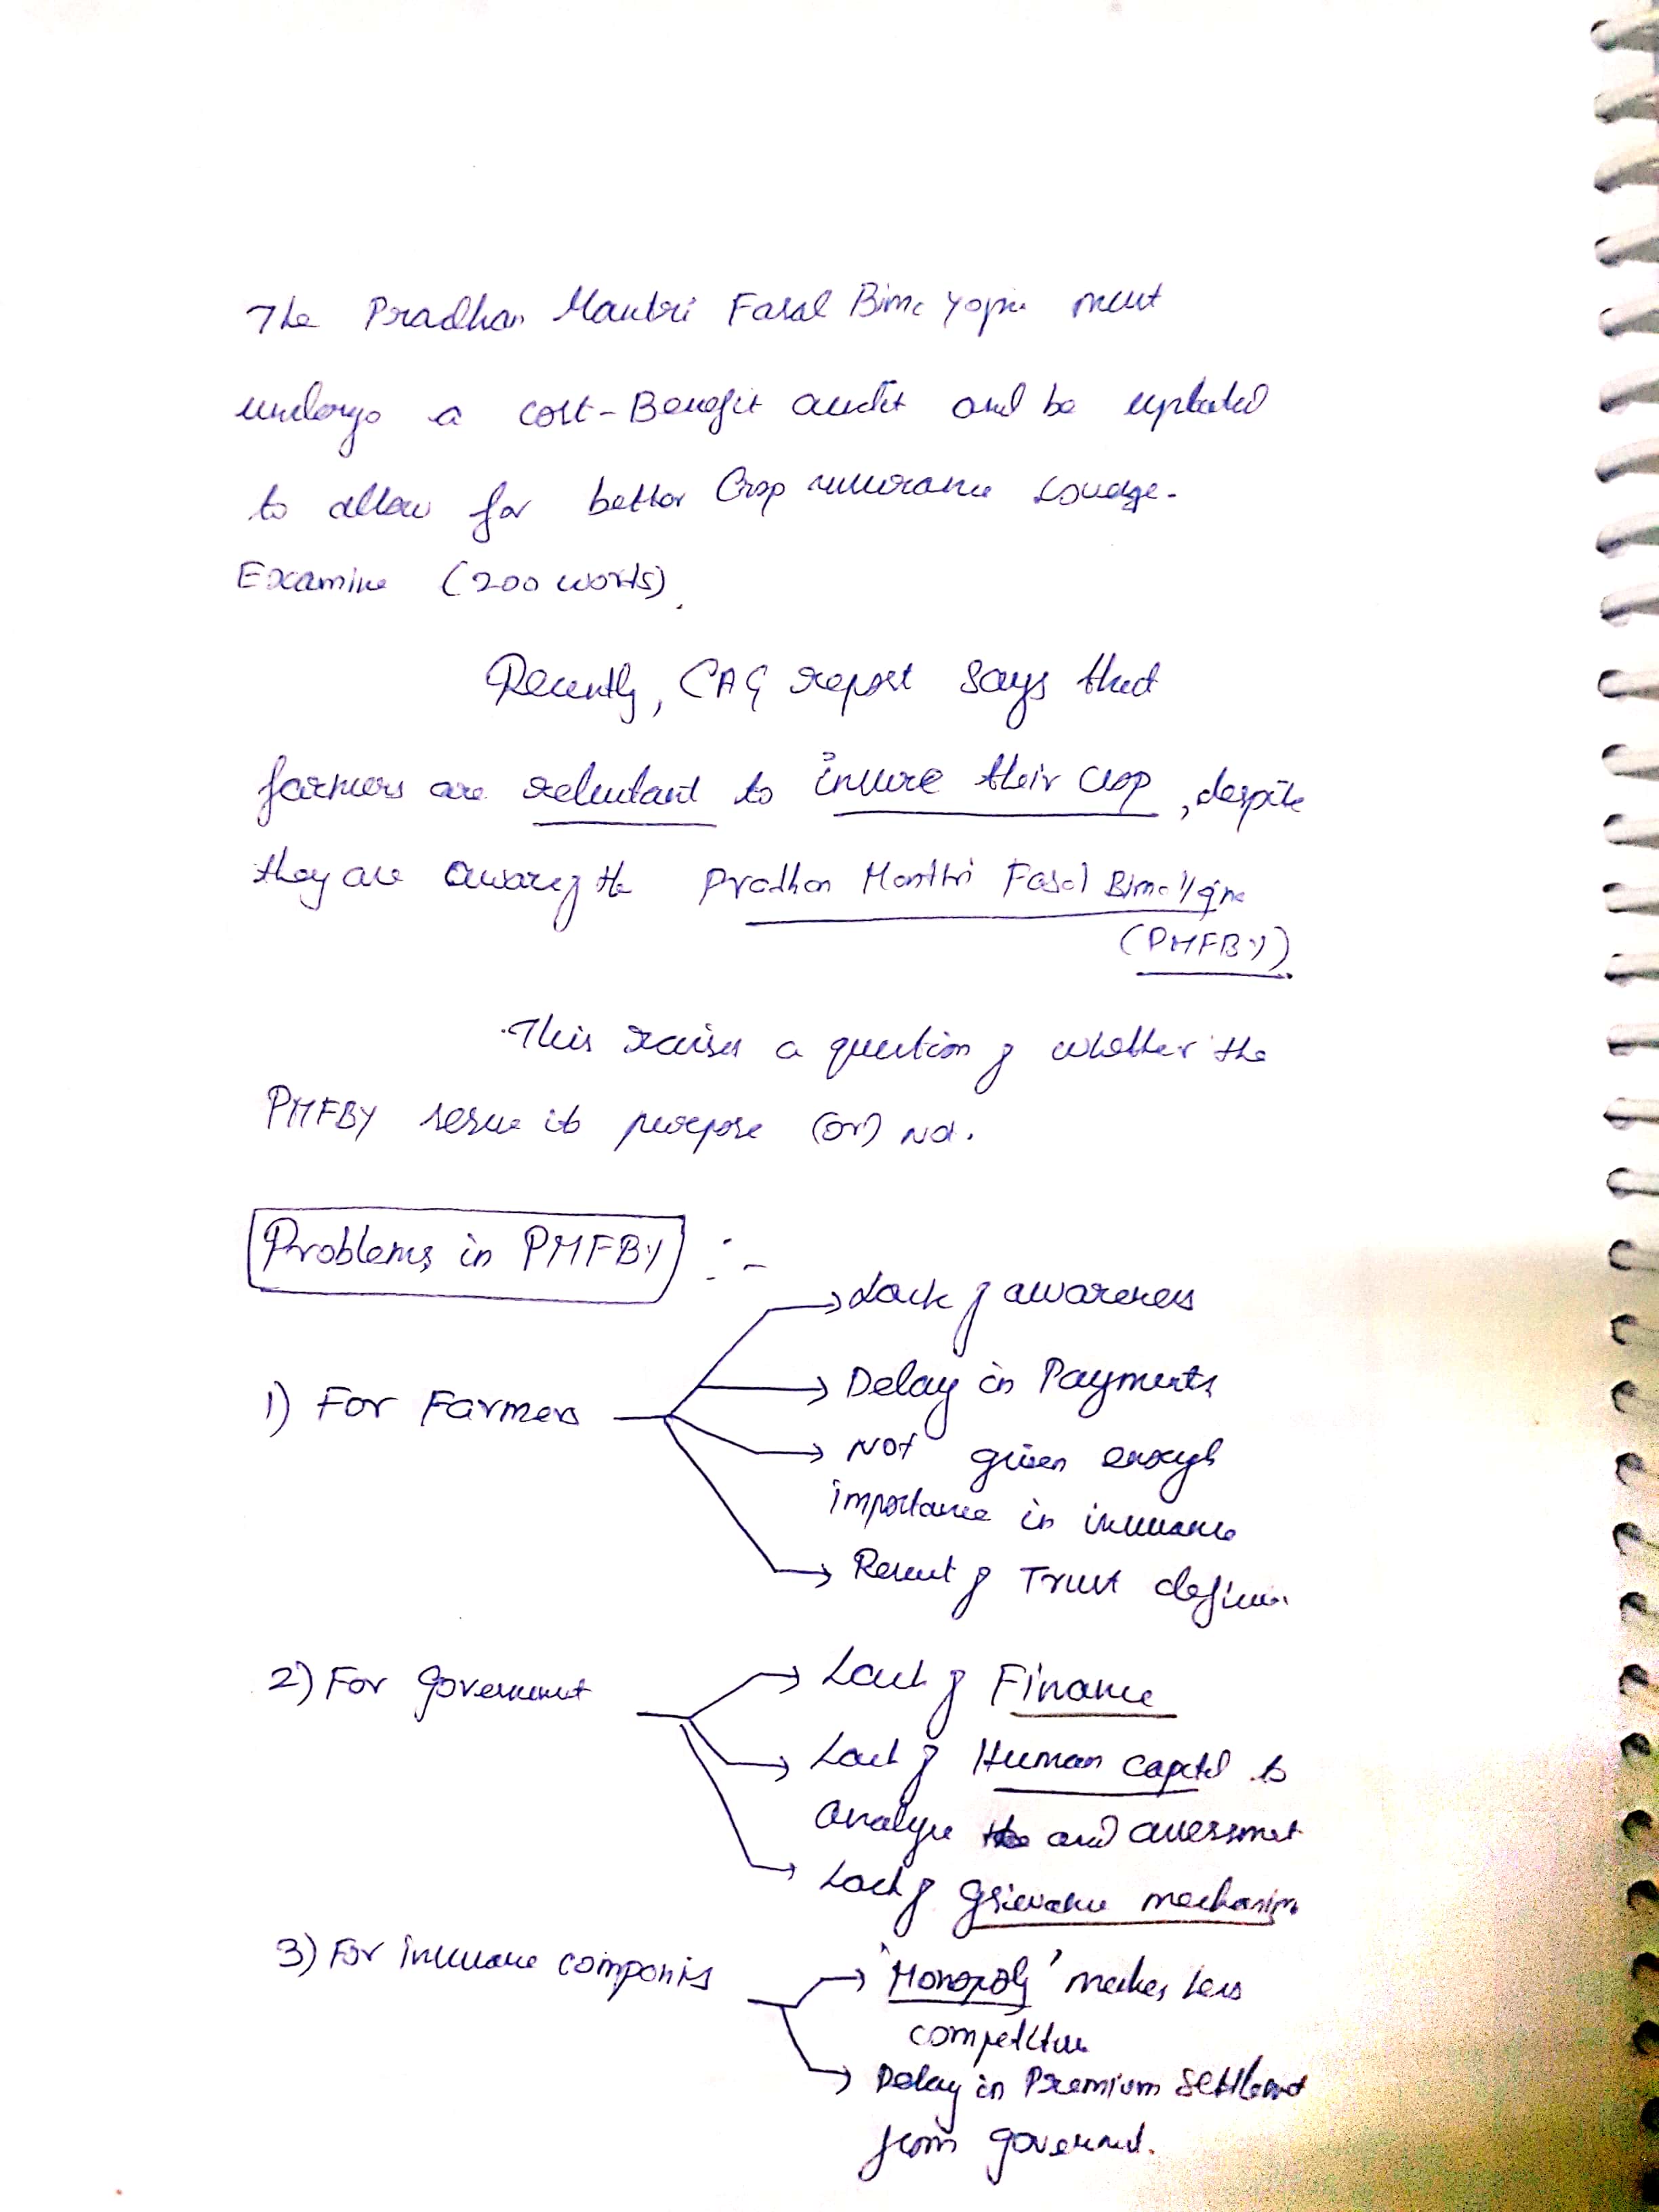 The Pradhan Mantri Fasal Bima Yojna must
undergo a cost-Benefit audit and be updated
to allow for better Crop insurance coverage.
Examine (200 words).
Recently, CAG report says that
farmers are reluctant to insure their crop, despite
they are aware of the Pradhan Manthri Fasal Bima Yojna
(PMFBY)
This raises a question of whether the
PMFBY serve its purpose (or) not.
Problems in PMFBY :-
→ Lack of awareness
→ Delay in Payments
1) For Farmers
→ Not given enough
importance in insurance
→ Result of Trust deficit
2) For Government
→ Lack of Finance
→ Lack of Human capital to
analyse and assessment
→ Lack of grievance mechanism
3) For insurance companies
→ 'Monopoly' makes less
competitive
→ Delay in Premium settlement
from government.